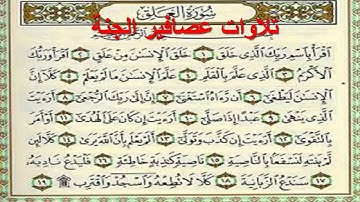 سُورَةُ الْعَلَقِ
تلاوات عصافير الجنة
ٱقْرَأْ بِٱسْمِ رَبِّكَ ٱلَّذِى خَلَقَ ١ خَلَقَ ٱلْإِنسَٰنَ مِنْ عَلَقٍ ٢ ٱقْرَأْ وَرَبُّكَ
ٱلْأَكْرَمُ ٣ ٱلَّذِى عَلَّمَ بِٱلْقَلَمِ ٤ عَلَّمَ ٱلْإِنسَٰنَ مَا لَمْ يَعْلَمْ ٥ كَلَّآ إِنَّ
ٱلْإِنسَٰنَ لَيَطْغَىٰٓ ٦ أَن رَّءَاهُ ٱسْتَغْنَىٰٓ ٧ إِنَّ إِلَىٰ رَبِّكَ ٱلرُّجْعَىٰٓ ٨ أَرَءَيْتَ
ٱلَّذِى يَنْهَىٰ ٩ عَبْدًا إِذَا صَلَّىٰٓ ١٠ أَرَءَيْتَ إِن كَانَ عَلَى ٱلْهُدَىٰٓ ١١ أَوْ أَمَرَ
بِٱلتَّقْوَىٰٓ ١٢ أَرَءَيْتَ إِن كَذَّبَ وَتَوَلَّىٰٓ ١٣ أَلَمْ يَعْلَم بِأَنَّ ٱللَّهَ يَرَىٰ ١٤ كَلَّا لَئِن
لَّمْ يَنتَهِ لَنَسْفَعًۢا بِٱلنَّاصِيَةِ ١٥ نَاصِيَةٍ كَٰذِبَةٍ خَاطِئَةٍ ١٦ فَلْيَدْعُ نَادِيَهُۥ
١٧ سَنَدْعُ ٱلزَّبَانِيَةَ ١٨ كَلَّا لَا تُطِعْهُ وَٱسْجُدْ وَٱقْتَرِب ۩ ١٩